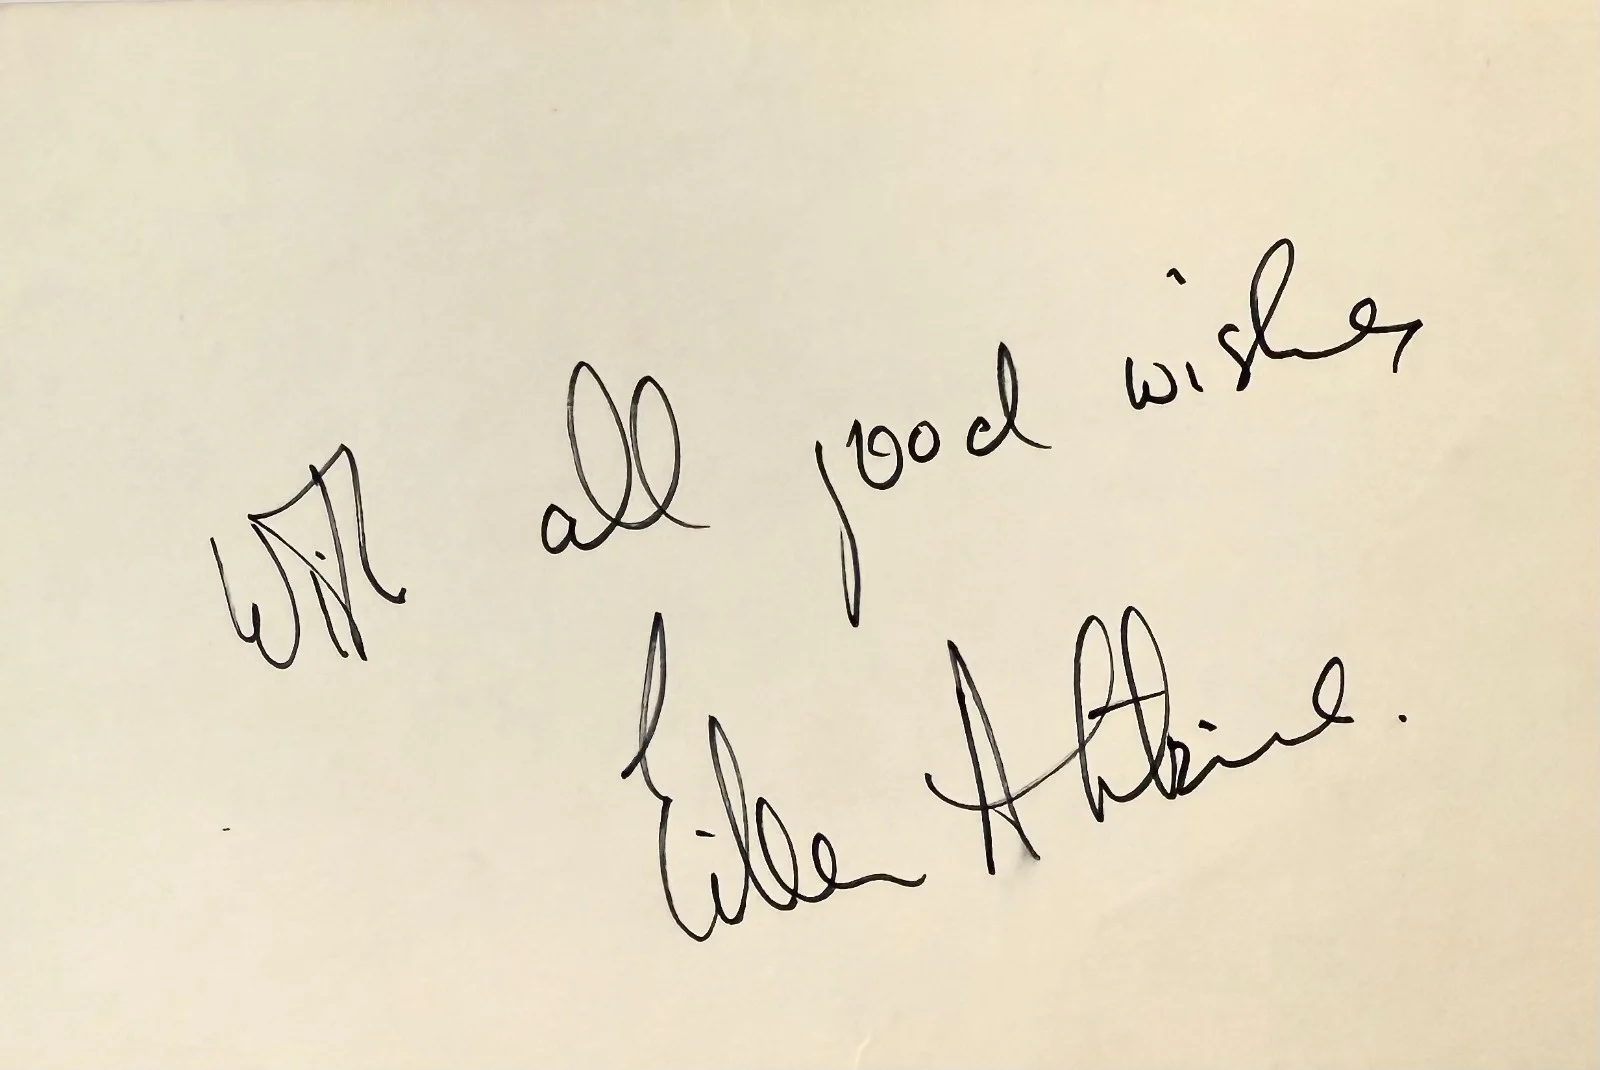 With all good wishes
Eileen Atkins.